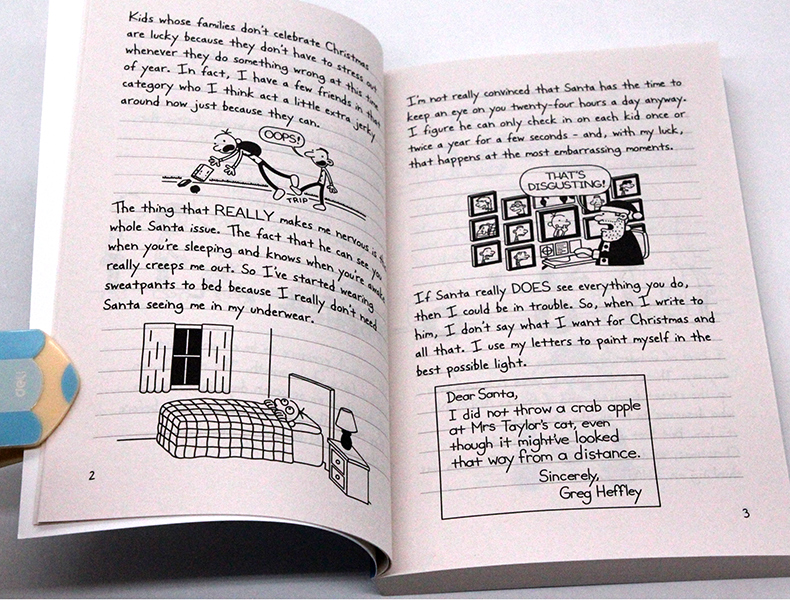 Kids whose families don't celebrate Christmas
are lucky because they don't have to stress out
whenever they do something wrong at this time
of year. In fact, I have a few friends in that
category who I think act a little extra jerky
around now just because they can.
OOPS!
TRIP
The thing that REALLY makes me nervous is the
whole Santa issue. The fact that he can see you
when you're sleeping and knows when you're awake
really creeps me out. So I've started wearing
sweatpants to bed because I really don't need
Santa seeing me in my underwear.
deli
2
I'm not really convinced that Santa has the time to
keep an eye on you twenty-four hours a day anyway.
I figure he can only check in on each kid once or
twice a year for a few seconds - and, with my luck,
that happens at the most embarrassing moments.
THAT'S
DISGUSTING!
If Santa really DOES see everything you do,
then I could be in trouble. So, when I write to
him, I don't say what I want for Christmas and
all that. I use my letters to paint myself in the
best possible light.
Dear Santa,
I did not throw a crab apple
at Mrs Taylor's cat, even
though it might've looked
that way from a distance.
Sincerely,
Greg Heffley
3